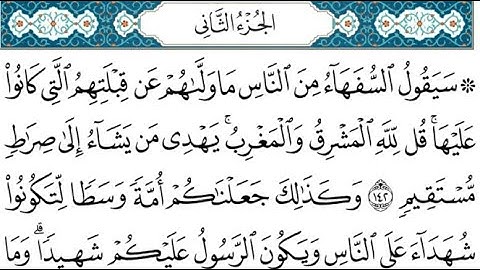 الجُزْءُ الثَّانِي
۞ سَيَقُولُ ٱلسُّفَهَآءُ مِنَ ٱلنَّاسِ مَا وَلَّىٰهُمْ عَن قِبْلَتِهِمُ ٱلَّتِي كَانُوا۟
عَلَيْهَا ۚ قُل لِّلَّهِ ٱلْمَشْرِقُ وَٱلْمَغْرِبُ ۚ يَهْدِي مَن يَشَآءُ إِلَىٰ صِرَٰطٍ
مُّسْتَقِيمٍ ١٤٢ وَكَذَٰلِكَ جَعَلْنَٰكُمْ أُمَّةً وَسَطًا لِّتَكُونُوا۟
شُهَدَآءَ عَلَى ٱلنَّاسِ وَيَكُونَ ٱلرَّسُولُ عَلَيْكُمْ شَهِيدًا ۗ وَمَا